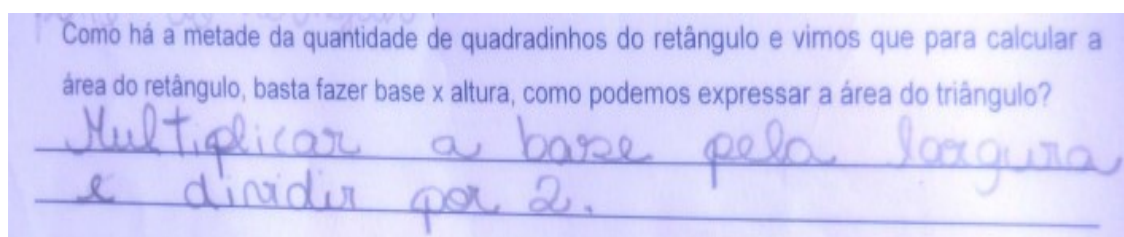 Como há a metade da quantidade de quadradinhos do retângulo e vimos que para calcular a
área do retângulo, basta fazer base x altura, como podemos expressar a área do triângulo?
Multiplicar a base pela largura
e dividir por 2.